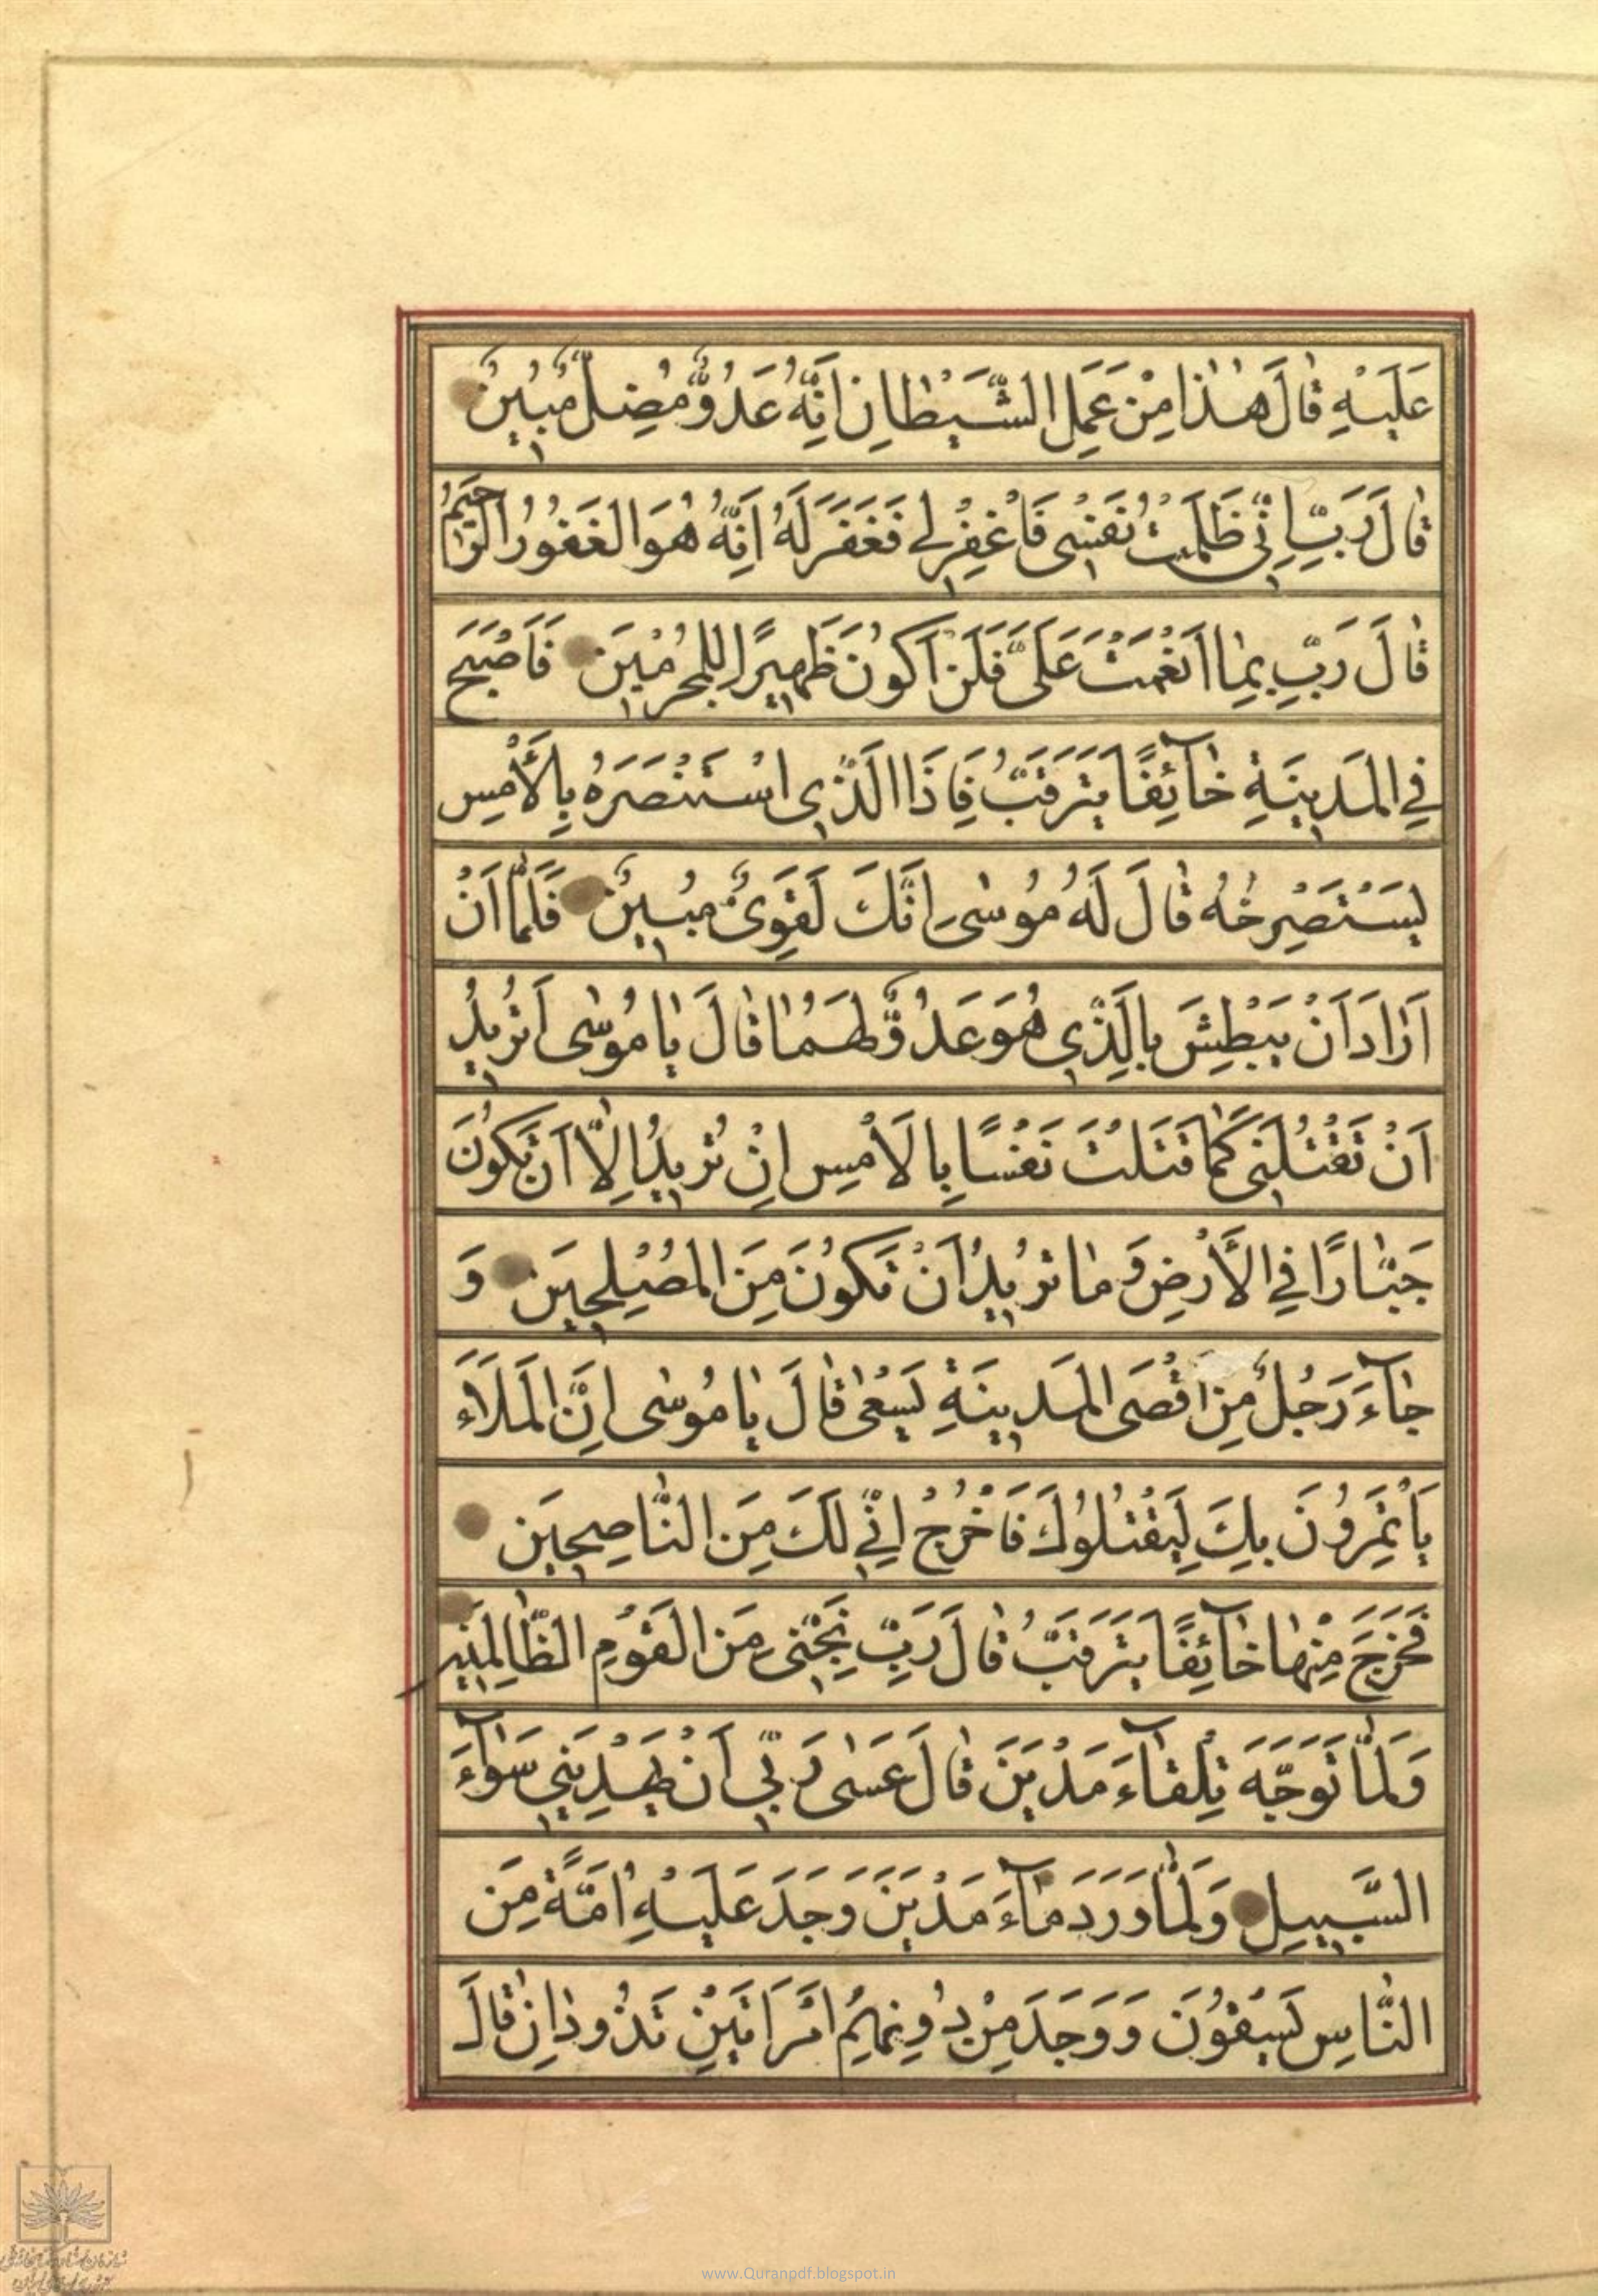 عَلَيْهِ قٰالَ هٰذٰا مِنْ عَمَلِ الشَّيْطٰانِ اِنَّهُ عَدُوٌّ مُضِلٌّ مُبِينٌ
قٰالَ رَبِّ اِنِّي ظَلَمْتُ نَفْسِي فَاغْفِرْ لِي فَغَفَرَ لَهُ اِنَّهُ هُوَ الْغَفُورُ الرَّحِيمُ
قٰالَ رَبِّ بِمٰا اَنْعَمْتَ عَلَيَّ فَلَنْ اَكُونَ ظَهِيرًا لِلْمُجْرِمِينَ فَاَصْبَحَ
فِي الْمَدِينَةِ خٰآئِفًا يَتَرَقَّبُ فَاِذَا الَّذِي اسْتَنْصَرَهُ بِالْأَمْسِ
يَسْتَصْرِخُهُ قٰالَ لَهُ مُوسٰى اِنَّكَ لَغَوِيٌّ مُبِينٌ فَلَمّٰا اَنْ
اَرٰادَ اَنْ يَبْطِشَ بِالَّذِي هُوَ عَدُوٌّ لَهُمٰا قٰالَ يٰا مُوسٰى اَتُرِيدُ
اَنْ تَقْتُلَنِي كَمٰا قَتَلْتَ نَفْسًا بِالْاَمْسِ اِنْ تُرِيدُ اِلّٰا اَنْ تَكُونَ
جَبّٰارًا فِي الْأَرْضِ وَ مٰا تُرِيدُ اَنْ تَكُونَ مِنَ الْمُصْلِحِينَ وَ
جٰآءَ رَجُلٌ مِنْ اَقْصَى الْمَدِينَةِ يَسْعٰى قٰالَ يٰا مُوسٰى اِنَّ الْمَلَاَءَ
يَأْتَمِرُونَ بِكَ لِيَقْتُلُوكَ فَاخْرُجْ اِنِّي لَكَ مِنَ النّٰاصِحِينَ
فَخَرَجَ مِنْهٰا خٰآئِفًا يَتَرَقَّبُ قٰالَ رَبِّ نَجِّنِي مِنَ الْقَوْمِ الظّٰالِمِينَ
وَلَمّٰا تَوَجَّهَ تِلْقٰآءَ مَدْيَنَ قٰالَ عَسٰى رَبِّي اَنْ يَهْدِيَنِي سَوٰآءَ
السَّبِيلِ وَلَمّٰا وَرَدَ مٰآءَ مَدْيَنَ وَجَدَ عَلَيْهِ اُمَّةً مِنَ
النّٰاسِ يَسْقُونَ وَ وَجَدَ مِنْ دُونِهِمُ امْرَاَتَيْنِ تَذُودٰانِ قٰالَ
www.Quranpdf.blogspot.in